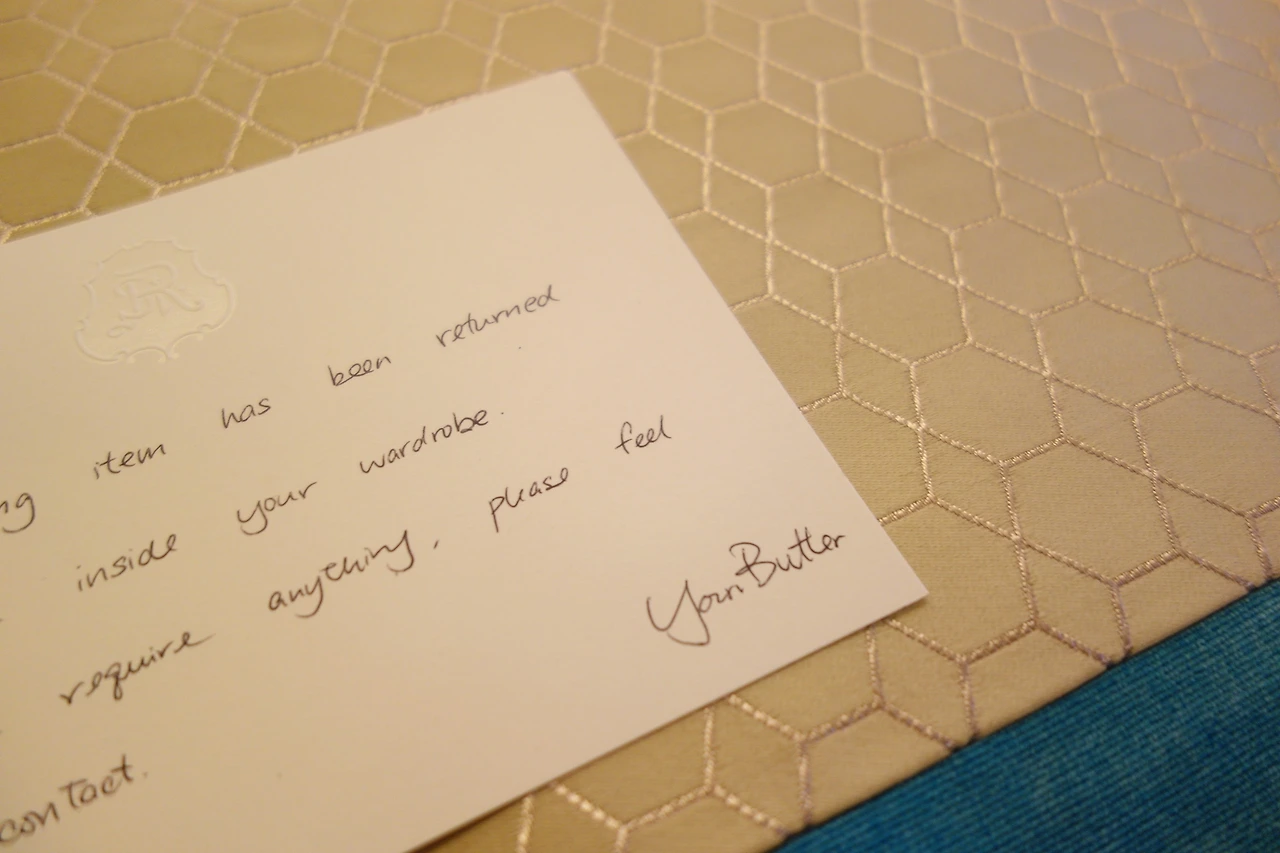 SR
ng item has been returned
inside your wardrobe.
require anything, please feel
contact.
Your Butler